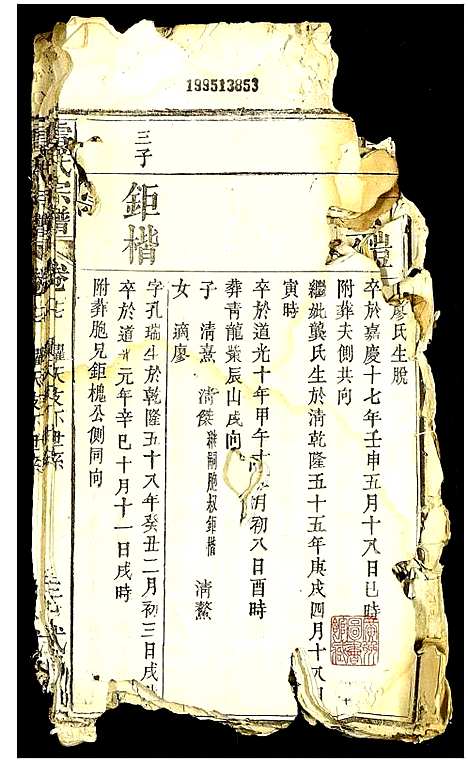 199513853
禮
廖氏生脫
卒於嘉慶十七年壬申五月十八日巳時
附葬夫側共向
繼妣龔氏生於清乾隆五十五年庚戌四月十八日
寅時
卒於道光十年甲午十月初八日酉時
葬青龍業辰山戌向
子 清熹 清傑 繼嗣胞叔鉅楷 清鰲
女 適廖
三子
鉅楷
字孔瑞生於乾隆五十八年癸丑二月初三日戌
卒於道光元年辛巳十月十一日戌時
附葬胞兄鉅槐公側同向
氏宗譜 卷七